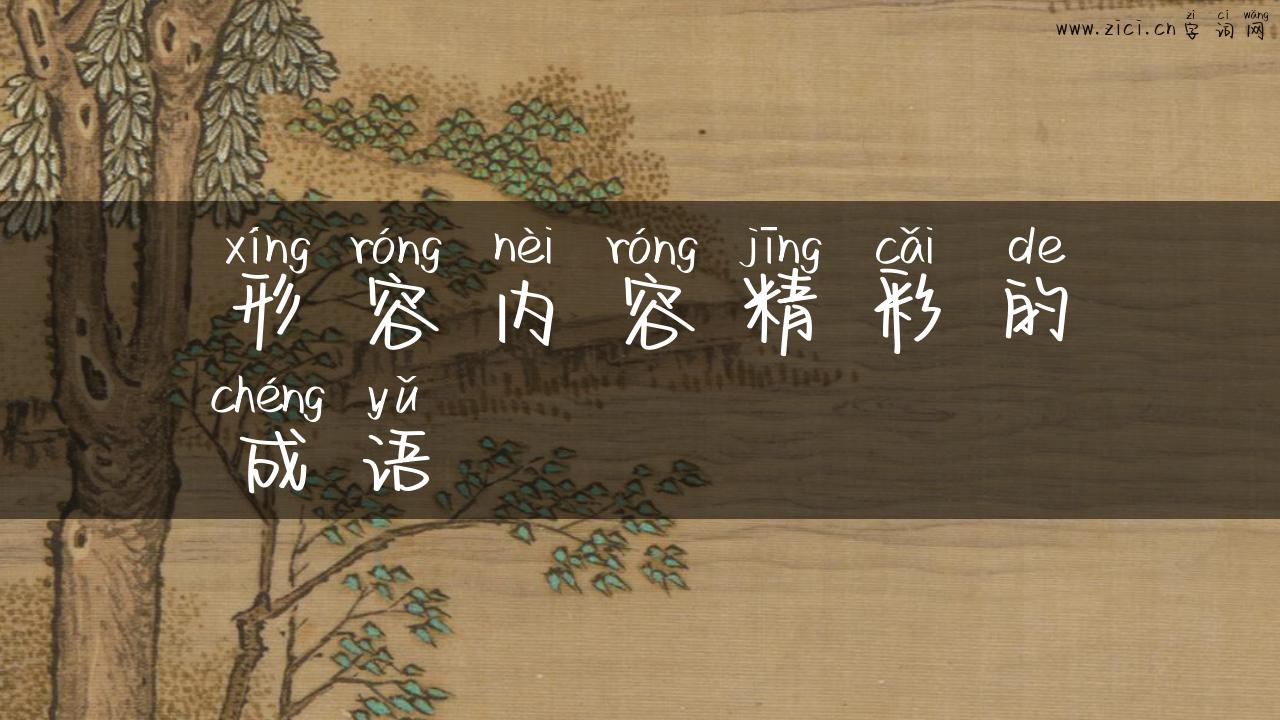 zì cí wǎng
www.zici.cn 字词网
xíng róng nèi róng jīng cǎi de
形容内容精彩的
chéng yǔ
成语